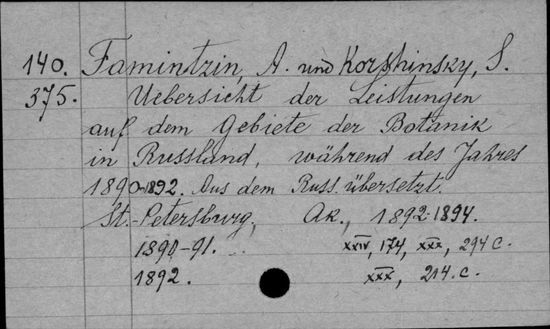 140. Famintzin, A. und Korshinsky, S.
375. Uebersicht der Leistungen
auf dem Gebiete der Botanik
in Russland, während des Jahres
1890-1892. Aus dem Russ. übersetzt.
St.-Petersburg, Ak., 1892-1894.
1890-91. .. XXIV, 174, XXX, 294 c.
1892. XXX, 214. c.